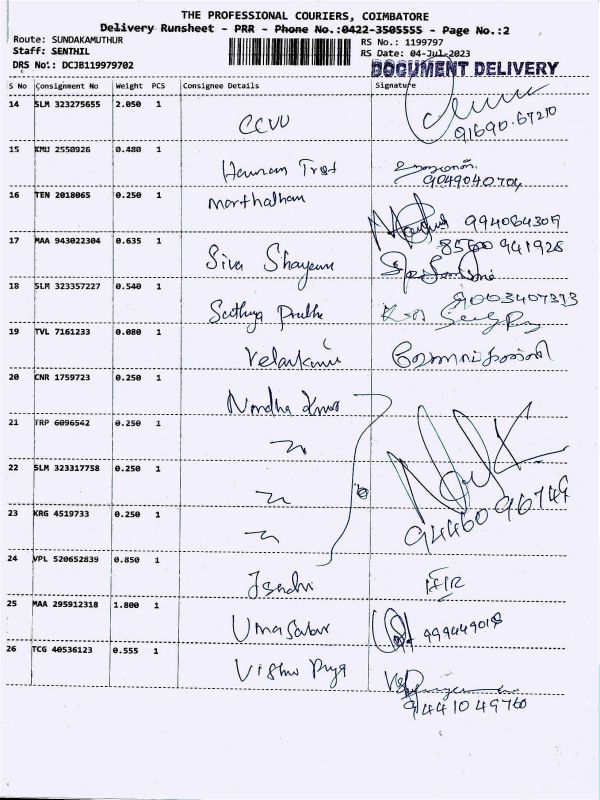 THE PROFESSIONAL COURIERS, COIMBATORE
Delivery Runsheet - PRR - Phone No.:0422-3505555 - Page No.:2
Route: SUNDAKAMUTHUR RS No.: 1199797
Staff: SENTHIL RS Date: 04-Jul-2023
DRS No.: DCJB119979702 DOCUMENT DELIVERY
S No Consignment No Weight PCS Consignee Details Signature
14 SLM 323275655 2.050 1
CCVU 91690 67210
15 KMU 2550926 0.480 1
Hannan Trst
9049040704
16 TEN 2018065 0.250 1 marthalham
994064309
17 MAA 943022304 0.635 1 85500 941928
Siva Shayam
18 SLM 323357227 0.540 1
Sathya Prabha 9003407373
19 TVL 7161233 0.080 1
Velankani
20 CNR 1759723 0.250 1
Nandha Kumar
21 TRP 6096542 0.250 1
22 SLM 323317758 0.250 1
23 KRG 4519733 0.250 1
9446096749
24 VPL 520652839 0.850 1
25 MAA 295912318 1.800 1
Uma 999449018
26 TCG 40536123 0.555 1
Vishnu Priya
9441049760